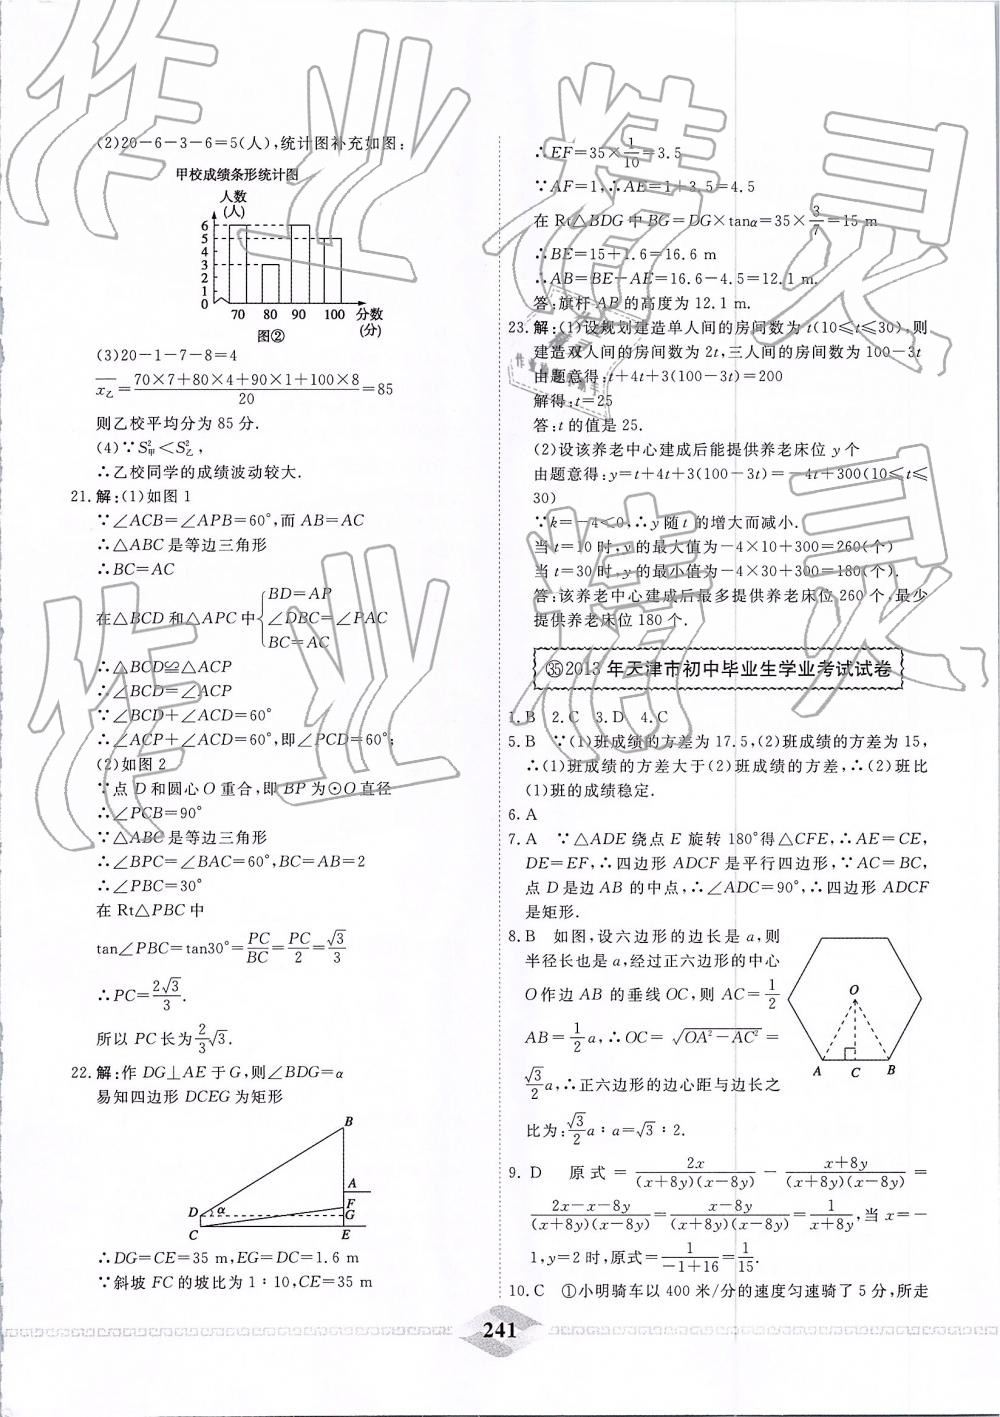 (2)20-6-3-6=5(人),统计图补充如图:
甲校成绩条形统计图
人数
(人)
6
5
4
3
2
1
0
70 80 90 100 分数
(分)
图②
(3)20-1-7-8=4
x乙=(70×7+80×4+90×1+100×8)/20=85
则乙校平均分为 85 分.
(4)∵S²甲<S²乙,
∴乙校同学的成绩波动较大.
21.解:(1)如图 1
∵∠ACB=∠APB=60°,而 AB=AC
∴△ABC 是等边三角形
∴BC=AC
在△BCD 和△APC 中{BD=AP
∠DBC=∠PAC
BC=AC
∴△BCD≌△ACP
∴∠BCD=∠ACP
∵∠BCD+∠ACD=60°
∴∠ACP+∠ACD=60°,即∠PCD=60°;
(2)如图 2
∵点 D 和圆心 O 重合,即 BP 为⊙O 直径
∴∠PCB=90°
∵△ABC 是等边三角形
∴∠BPC=∠BAC=60°,BC=AB=2
∴∠PBC=30°
在 Rt△PBC 中
tan∠PBC=tan30°=PC/BC=PC/2=√3/3
∴PC=2√3/3.
所以 PC 长为2/3√3.
22.解:作 DG⊥AE 于 G,则∠BDG=α
易知四边形 DCEG 为矩形
B
A
F
D α G
C E
∴DG=CE=35 m,EG=DC=1.6 m
∵斜坡 FC 的坡比为 1∶10,CE=35 m
∴EF=35×1/10=3.5
∵AF=1,∴AE=1+3.5=4.5
在 Rt△BDG 中 BG=DG×tanα=35×3/7=15 m
∴BE=15+1.6=16.6 m
∴AB=BE-AE=16.6-4.5=12.1 m.
答:旗杆 AB 的高度为 12.1 m.
23.解:(1)设规划建造单人间的房间数为 t(10≤t≤30),则
建造双人间的房间数为 2t,三人间的房间数为 100-3t
由题意得:t+4t+3(100-3t)=200
解得:t=25
答:t 的值是 25.
(2)设该养老中心建成后能提供养老床位 y 个
由题意得:y=t+4t+3(100-3t)=-4t+300(10≤t≤
30)
∵k=-4<0,∴y 随 t 的增大而减小.
当 t=10 时,y 的最大值为-4×10+300=260(个)
当 t=30 时,y 的最小值为-4×30+300=180(个).
答:该养老中心建成后最多提供养老床位 260 个,最少
提供养老床位 180 个.
㉟2013 年天津市初中毕业生学业考试试卷
1.B 2.C 3.D 4.C
5.B ∵(1)班成绩的方差为 17.5,(2)班成绩的方差为 15,
∴(1)班成绩的方差大于(2)班成绩的方差,∴(2)班比
(1)班的成绩稳定.
6.A
7.A ∵△ADE 绕点 E 旋转 180°得△CFE,∴AE=CE,
DE=EF,∴四边形 ADCF 是平行四边形,∵AC=BC,
点 D 是边 AB 的中点,∴∠ADC=90°,∴四边形 ADCF
是矩形.
8.B 如图,设六边形的边长是 a,则
半径长也是 a,经过正六边形的中心
O 作边 AB 的垂线 OC,则 AC=1/2
AB=1/2a,∴OC=√(OA²-AC²)=
√3/2a,∴正六边形的边心距与边长之
比为:√3/2a∶a=√3∶2.
O
A C B
9. D 原式=2x/((x+8y)(x-8y))-(x+8y)/((x+8y)(x-8y))=
(2x-x-8y)/((x+8y)(x-8y))=(x-8y)/((x+8y)(x-8y))=1/(x+8y),当 x=-
1,y=2 时,原式=1/(-1+16)=1/15.
10.C ①小明骑车以 400 米/分的速度匀速骑了 5 分,所走
241
作业精灵
作业精灵